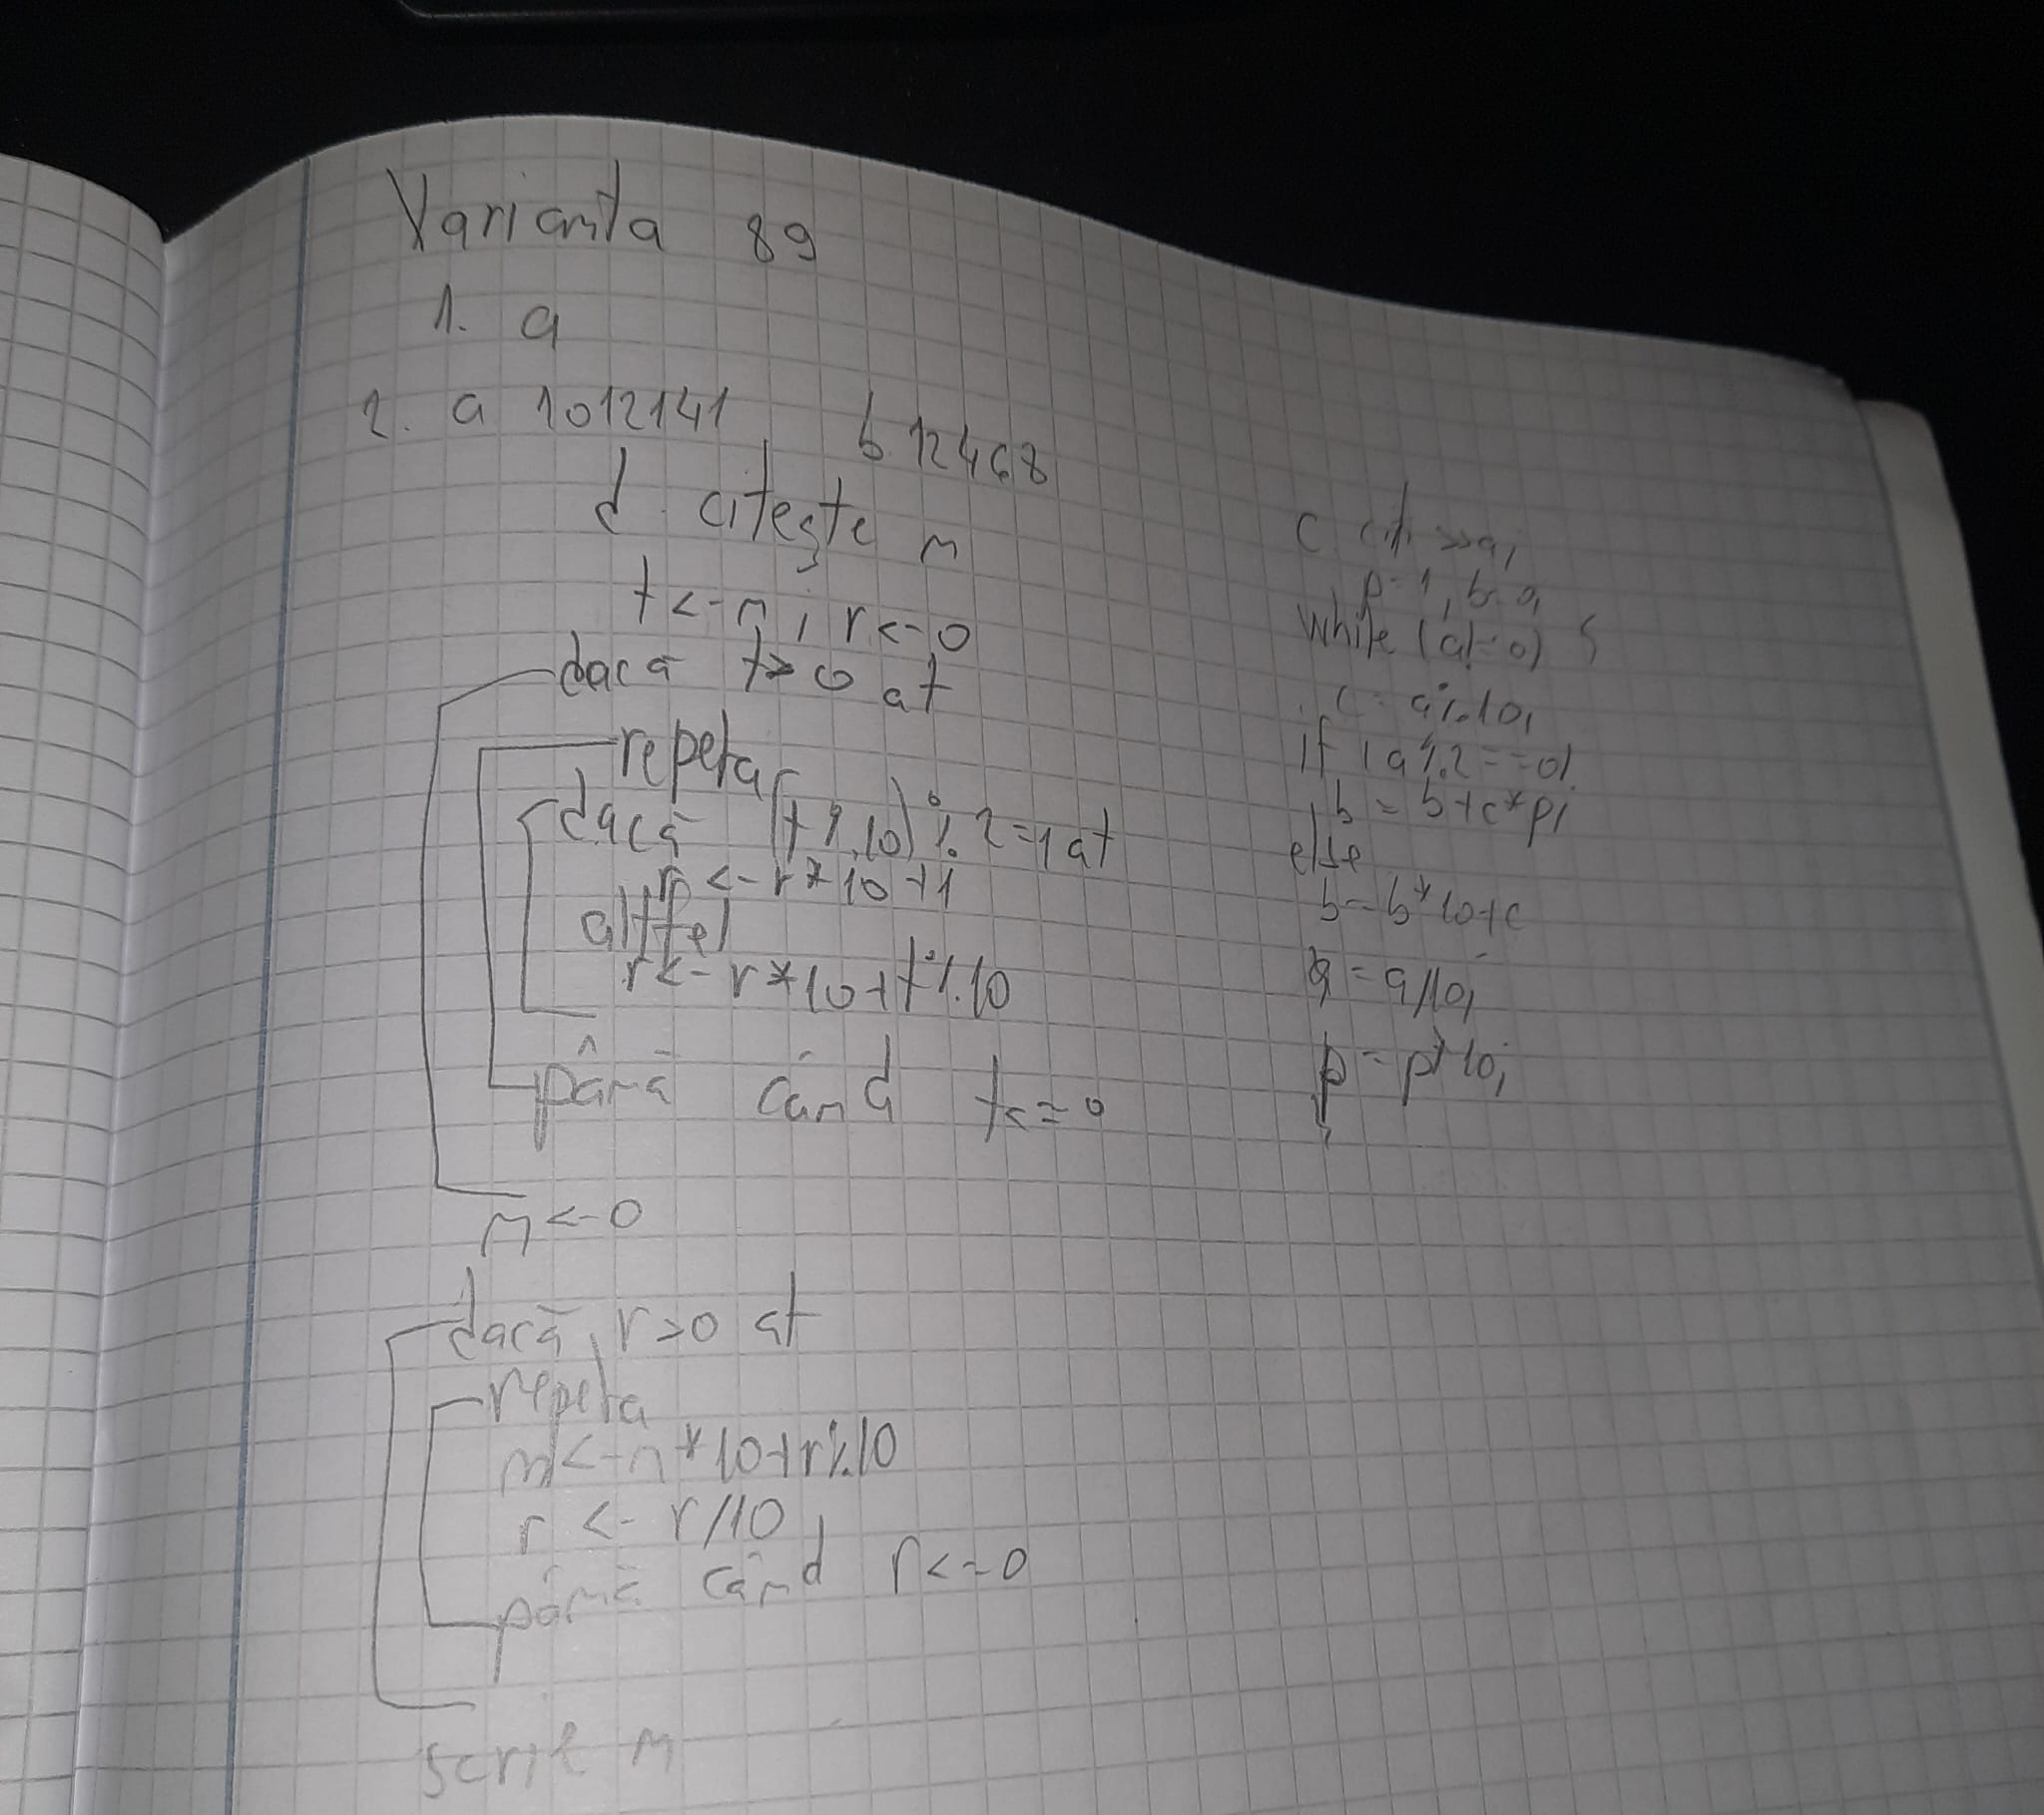 Varianta 89
1. a
2. a 1012141, b. 12468
d. citește n
t<-n; r<-0
dacă t>0 at
repeta
dacă (t%10)%2=1 at
r<-r*10+1
altfel
r<-r*10+t%10
până când t<=0
n<-0
dacă r>0 at
repeta
n<-n*10+r%10
r<-r/10
până când r<=0
scrie n
c. >>a;
p=1, b=a,
while (a!=0) {
c=a%10,
if (a%2==0)
b=b+c*p;
else
b=b*10+c
a=a/10;
p=p*10;
}